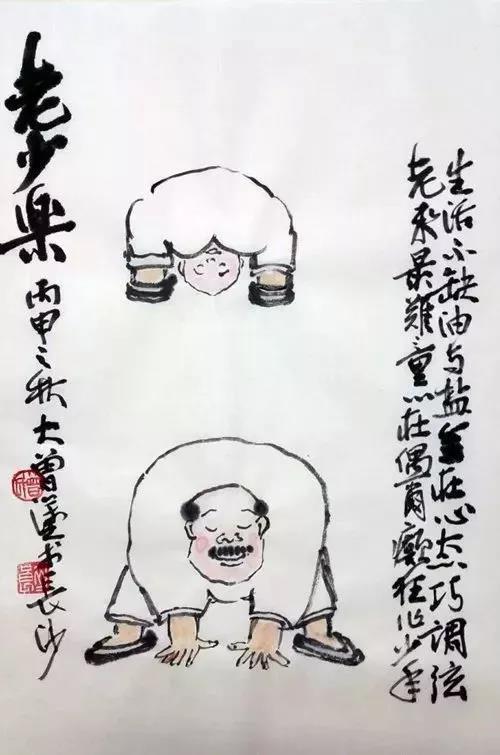 生活不缺油与盐在心态巧调弦
老来最难童心在偶爾癫狂作少年
老少楽
丙申之秋大曾于长沙